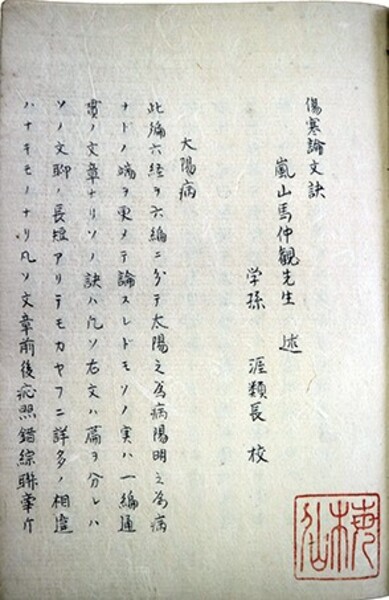 傷寒論文訣
嵐山馬仲観先生 述
学孫 涯類長 校
太陽病
此編六経ヲ六編ニ分テ太陽之為病陽明之為病
ナドノ端ヲ更メテ論スレドモソノ実ハ一編通
貫ノ文章ナリソノ訣ハ凡ソ右文ハ篇ヲ分レハ
ソノ文聊ノ長短アリテモカヤフニ許多ノ相違
ハナキモノナリ凡ソ文章前後応照錯綜聯